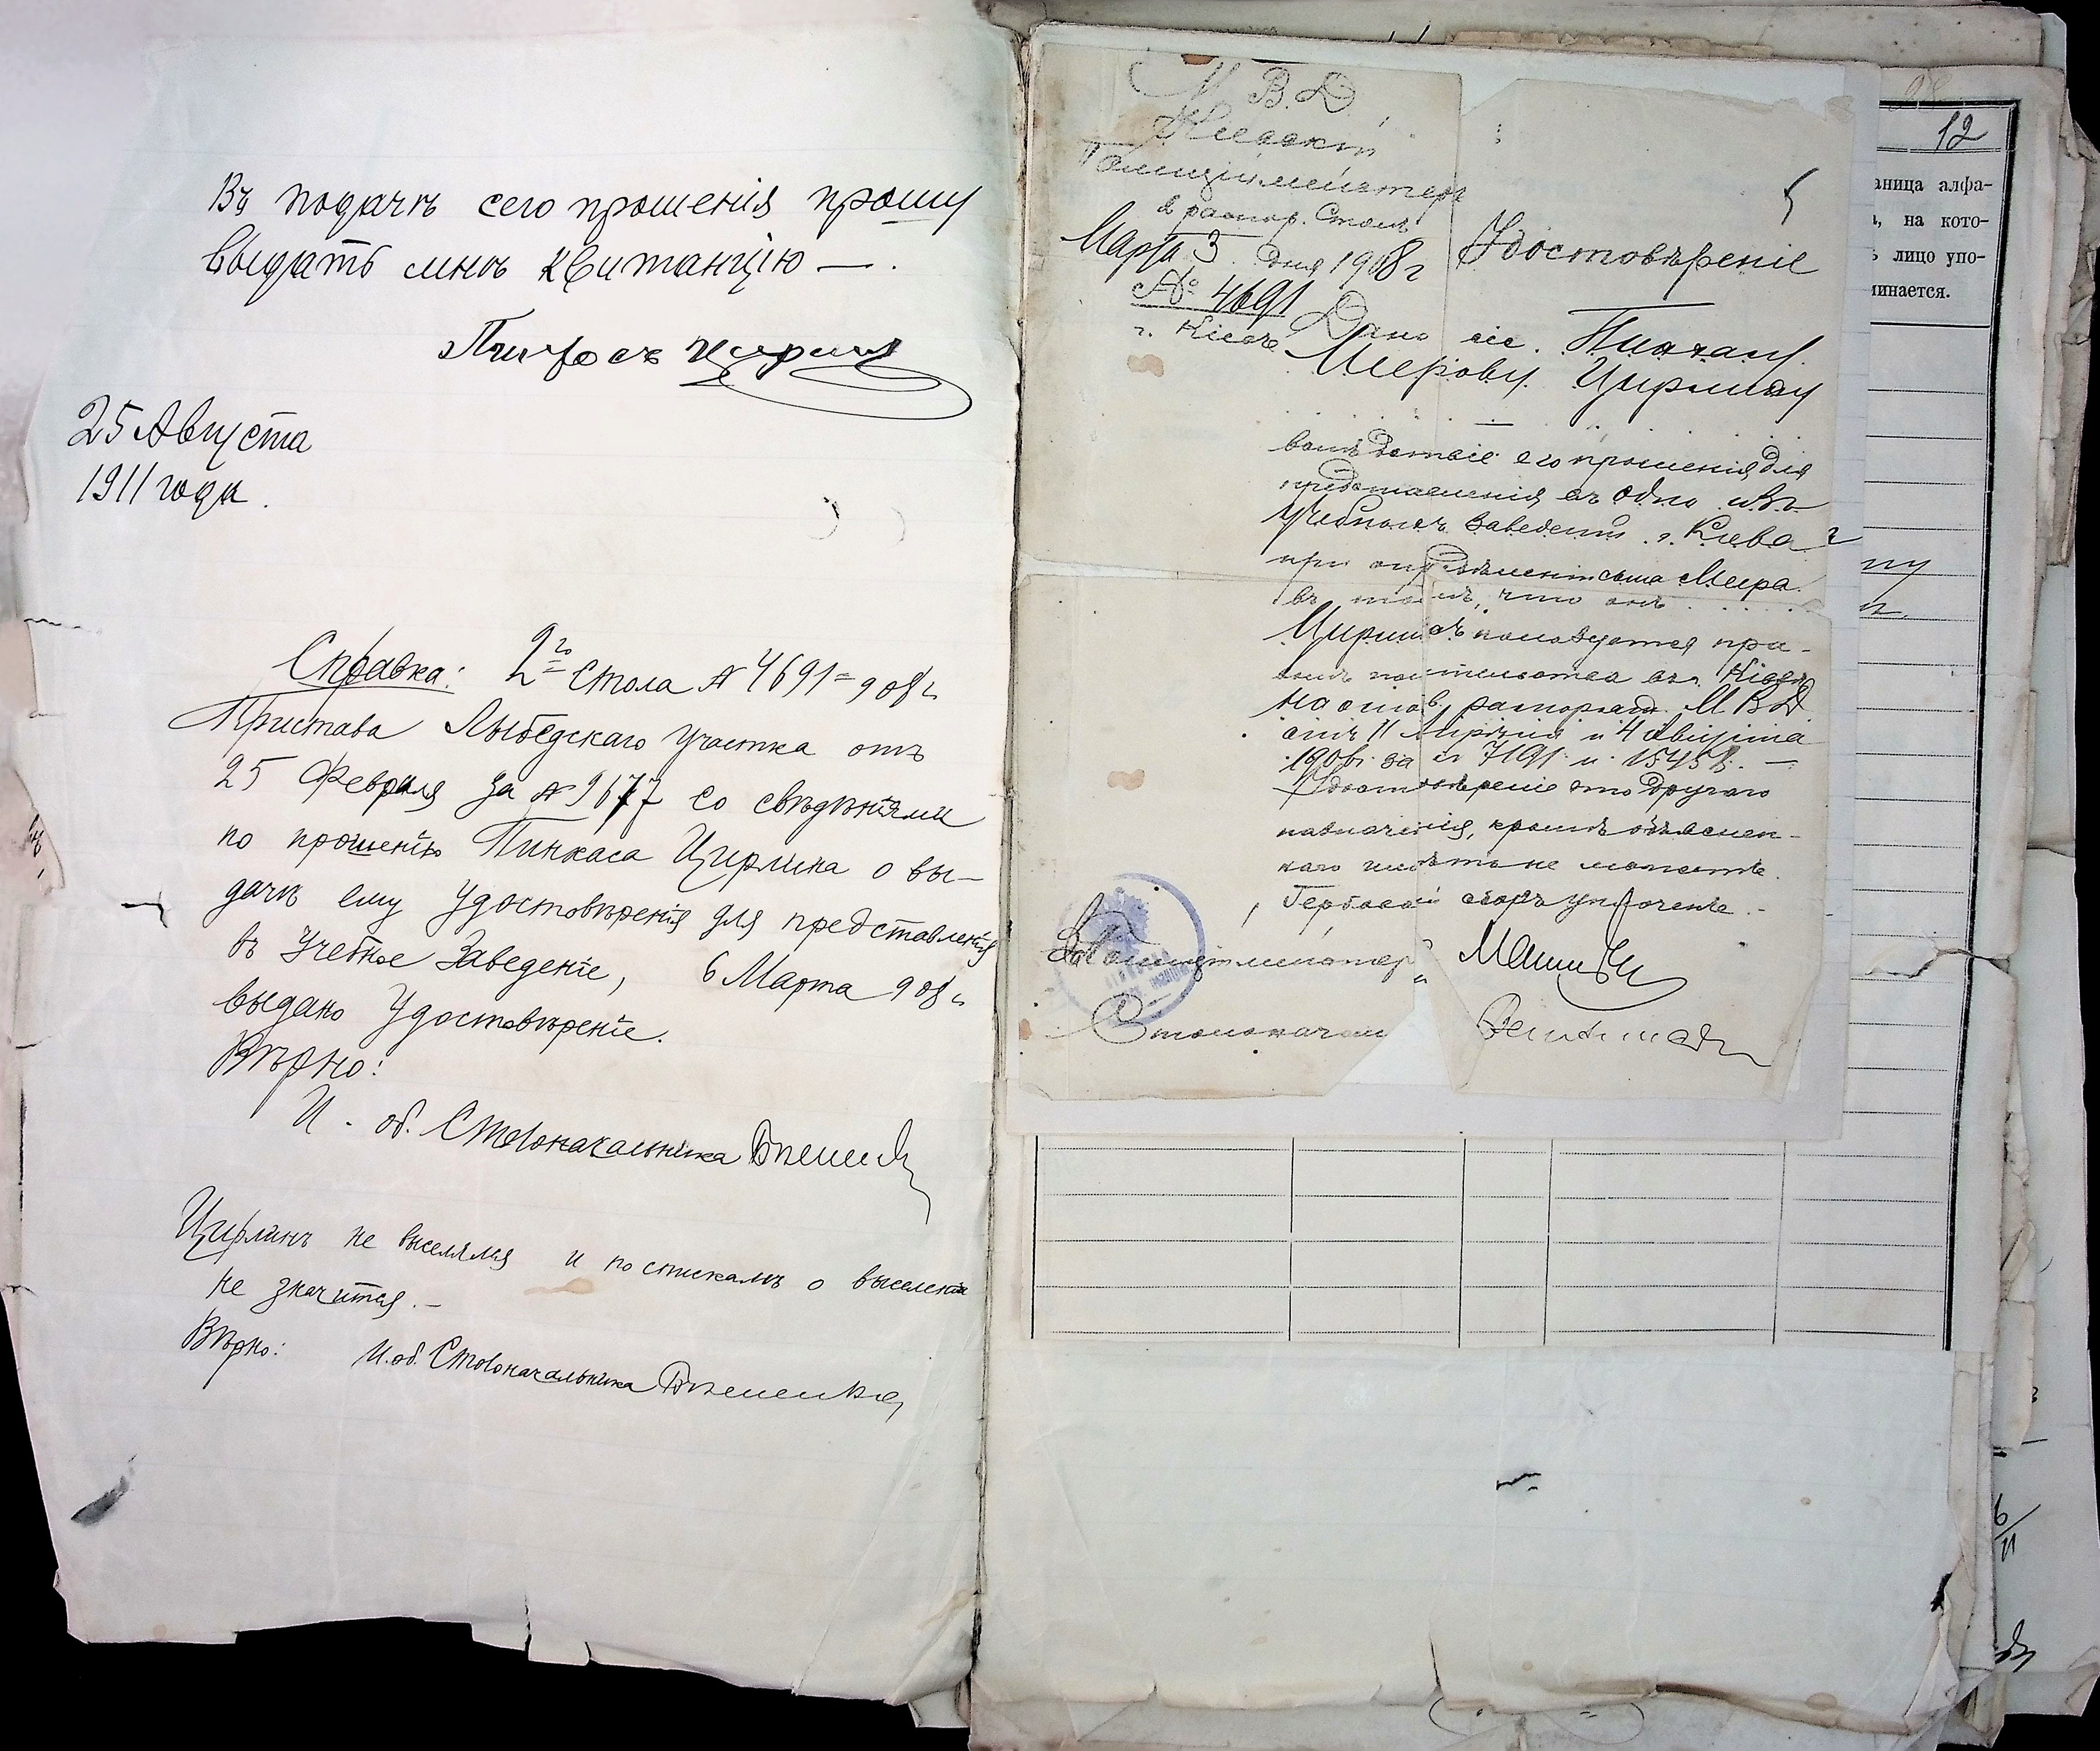 Въ подачѣ сего прошенія прошу
выдать мнѣ квитанцію —.
Пинхосъ Цирлинъ
25 Августа
1911 года.
Справка: 2го Стола № 4691=908 г.
Пристава Лыбедскаго Участка отъ
25 Февраля за № 9677 со свѣдѣніями
по прошенію Пинкаса Цирлина о вы–
дачѣ ему Удостовѣренія для представленія
въ Учебное Заведеніе, 6 Марта 908 г.
выдано Удостовѣреніе.
Вѣрно:
И. об. Столоначальника
Цирлинъ не выселялся и по спискамъ о выселеніи
не значится.–
Вѣрно: И.об. Столоначальника
М. В. Д.
Кіевскій
Полиціймейстеръ
2 распор. Столъ
Марта 3 дня 1908 г
№ 4691
г. Кіевъ
5
Удостовѣреніе
Дано сіе Пинхасу
Меерову Цирлину
вслѣдствіе его прошенія для
представленія въ одно изъ
учебныхъ заведеній г. Кіева
при опредѣленіи сына Меера
въ томъ, что онъ
Цирлинъ пользуется пра-
вомъ жительства въ г. Кіевѣ
на основ. распоряж. М В Д
отъ 11 Апрѣля и 4 Августа
190 за № 7191 и 15458. —
Удостовѣреніе это другого
назначенія, кромѣ объяснен-
наго имѣть не можетъ.
Гербовый сборъ уплоченъ.-
Полиціймейстеръ
Столоначал
12
аница алфа-
, на кото-
ъ лицо упо-
минается.